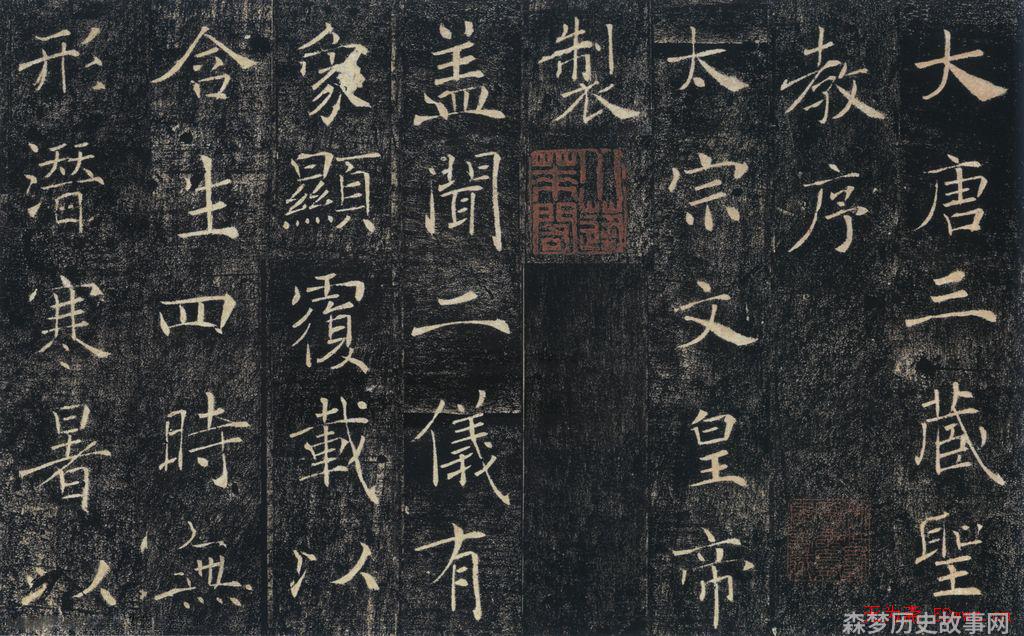 大唐三藏聖
教序
太宗文皇帝
製
蓋聞二儀有
象顯覆載以
含生四時無
形潛寒暑以
森梦历史故事网